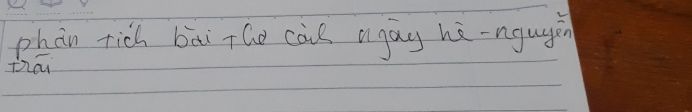 phân tích bài thơ cảnh ngày hè - nguyễn
trãi